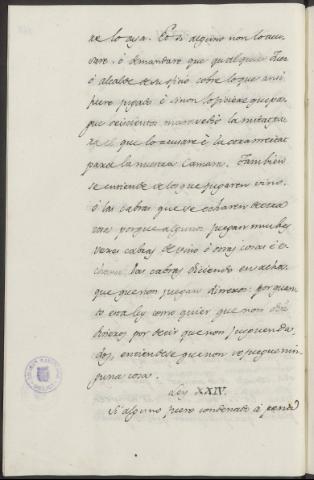 de lo aya. Et si alguno non lo acu-
sare, o demandare que qualquier Juez
o alcalde de su ofiçio sobre lo que ansi
fuere jugado è si non lo fiziere que pa-
gue seiscientos maravedis la mitad pa-
ra el que lo acusare è la otra meitat
para la nuestra Camara. Tambien
se entiende de los que jugaren vino,
ò las cabras que se echaren
porque algunos juegan muchas
veces cabras de vino ò otras cosas è
las cabras diciendo en achaq.
que que non juegan dineros: por quan-
to esta ley como quier que non
dineros por decir que non jueguen da-
dos, entiendese que non se juegue nin-
guna cosa.
Ley XXIV.
Si alguno fuere condenado à pena